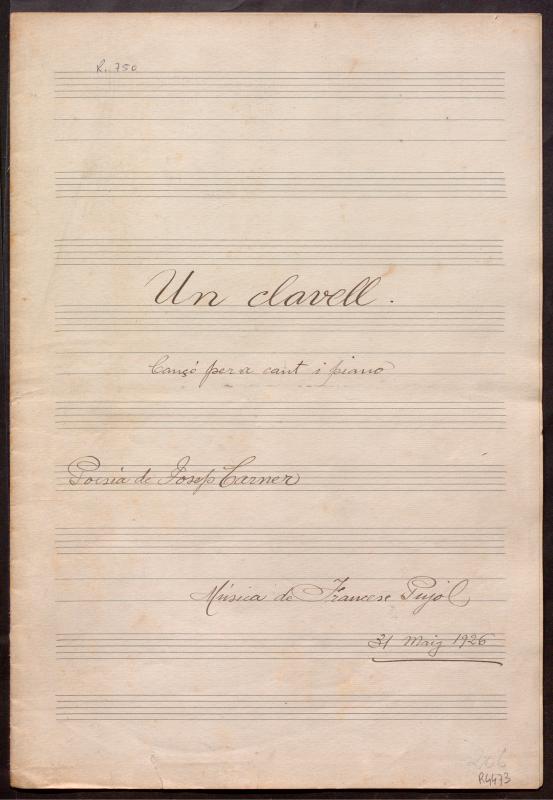 R. 750
Un clavell.
Cançó per a cant i piano
Poesía de Josep Carner
Música de Francesc Pujol
31 Maig 1926
206
R4473